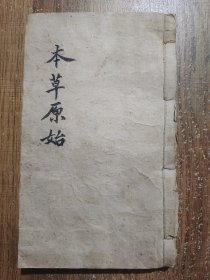 本草原始